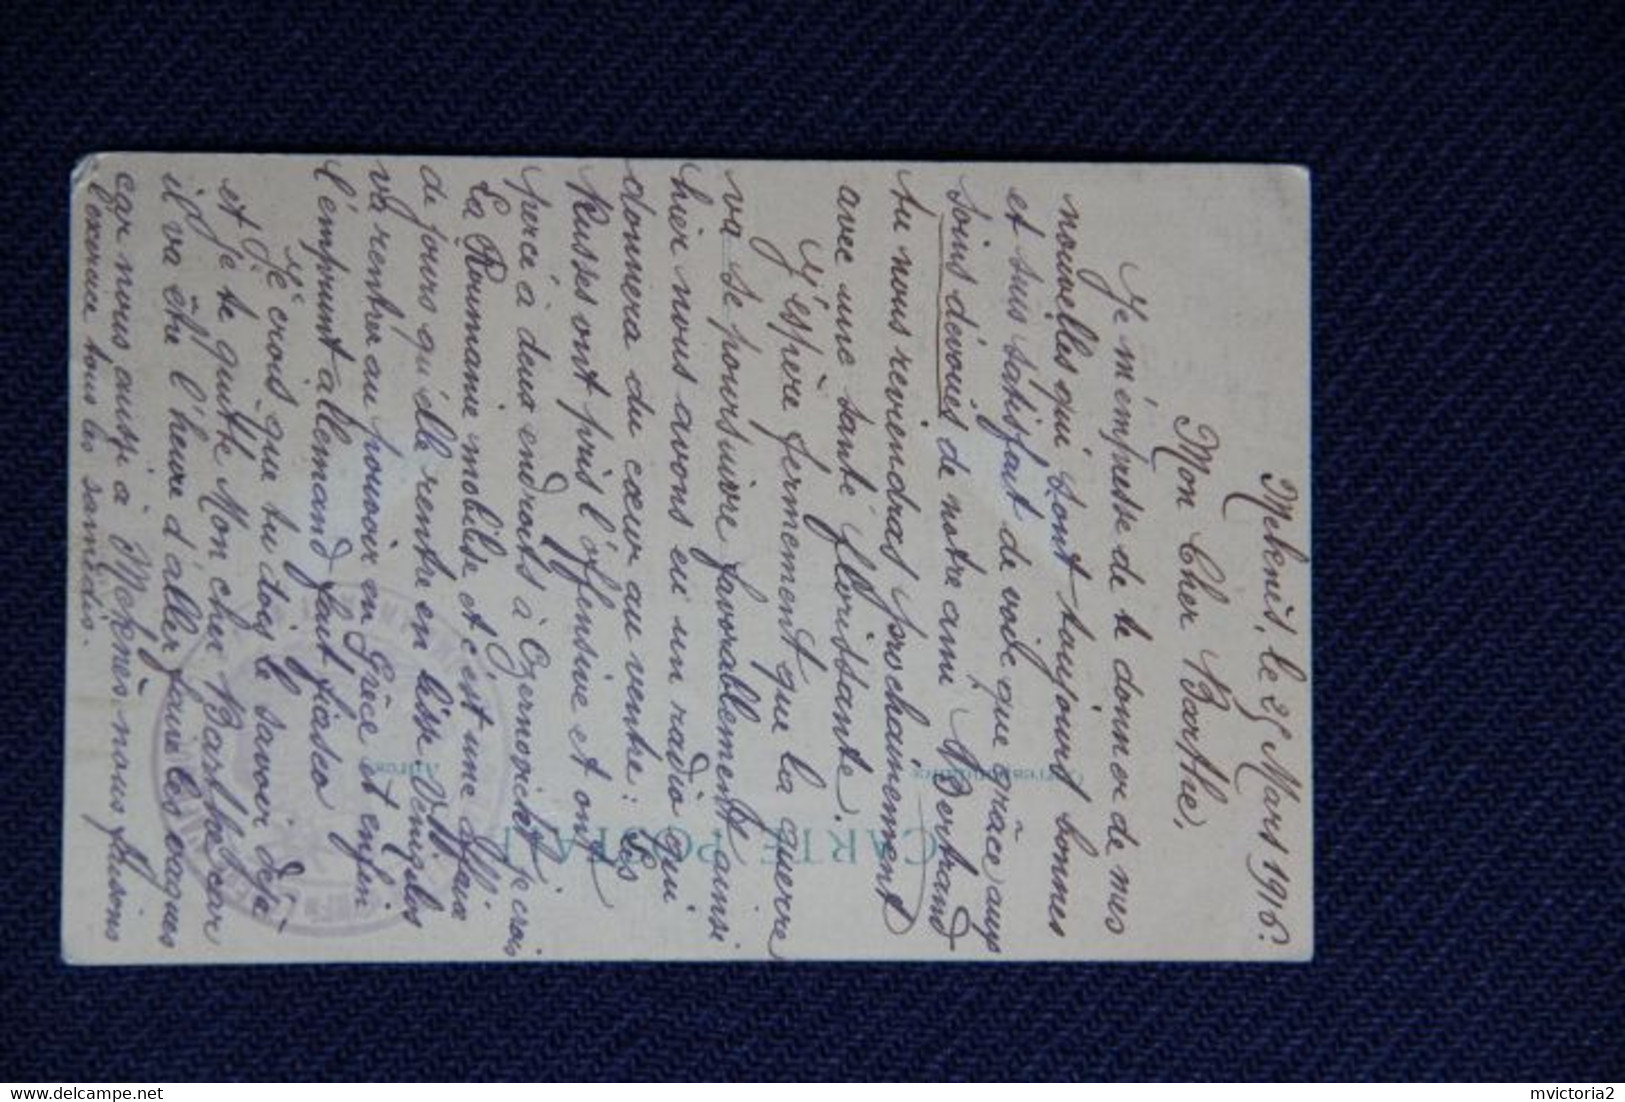 Meknès, le 25 Mars 1916.
Mon Cher Barthe,
Je m'empresse de te donner de mes
nouvelles qui sont toujours bonnes
et suis satisfait de voir que grâce aux
soins dévoués de notre ami Berthand
tu nous reviendras prochainement
avec une santé florissante.
J'espère fermement que la guerre
va se poursuivre favorablement ainsi
hier nous avons eu un radio qui
donnera du cœur au ventre : Les
Russes ont pris l'offensive et ont
percé à deux endroits à Czernovicht je crois
La Roumanie mobilise et c'est une affaire
de jours qu'elle rentre en lisse Vénizélos
va rentrer au pouvoir en Grèce et enfin
l'emprunt allemand fait fiasco
Je crois que tu dois le savoir déjà
et je te quitte Mon cher Barthe car
il va être l'heure d'aller faire les
car nous aussi à Meknès nous faisons
l'exercice tous les samedis.
CARTE POSTALE
Correspondance
Adresse
mvictoria2